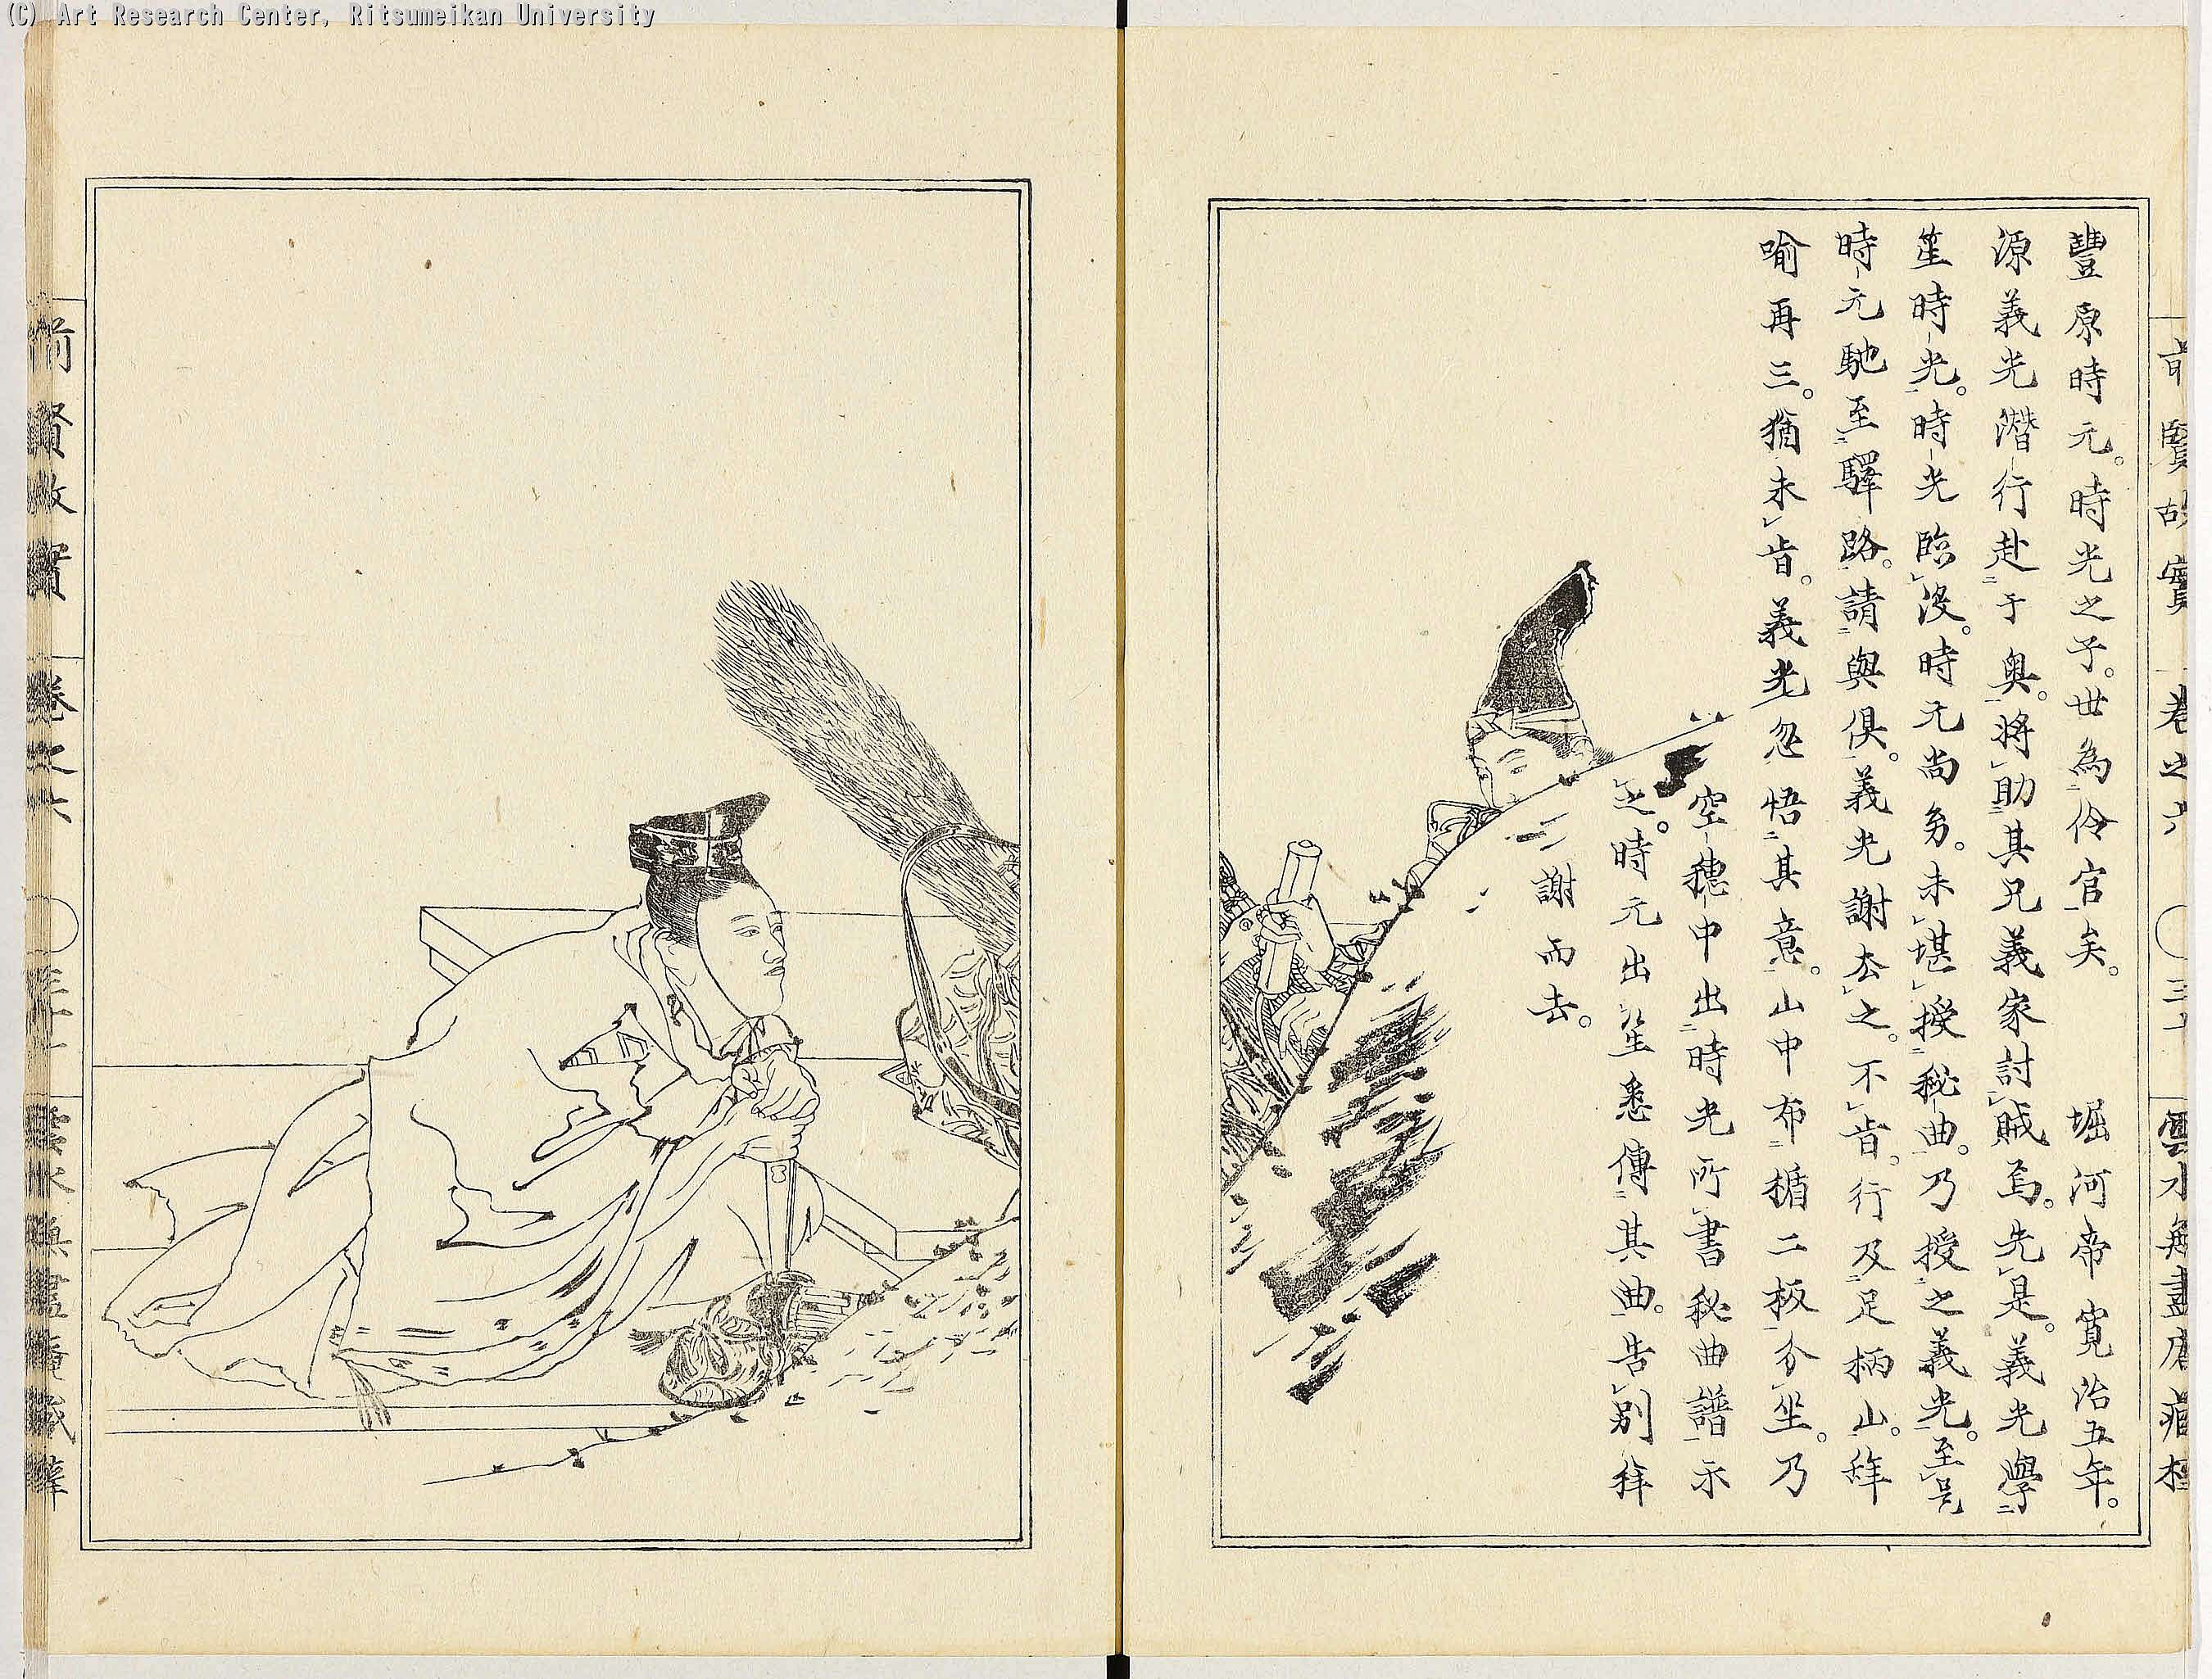 (C) Art Research Center, Ritsumeikan University
豐原時元。時光之子。世為伶官矣。堀河帝寛治五年。
源義光潛行赴于奥。將助其兄義家討賊焉。先是。義光學
笙時光。時光臨没。時元尚幼。未堪授秘曲。乃授之義光。至是
時元馳至驛路。請與倶。義光謝去之。不肯。行及足柄山。辞
喻再三。猶未肯。義光忽悟其意。山中布楯二板分坐。乃
空穗中出時光所書秘曲譜示
之。時元出笙悉傳其曲。告別拜
謝而去。
前賢故實 卷之六
前賢故實 卷之六